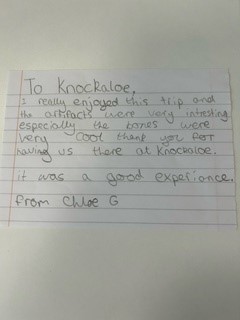 To Knockaloe,
I really enjoyed this trip and
the artifacts were very intresting
especially the bones were
very cool thank you for
having us there at Knockaloe.
it was a good experiance.
from Chloe G